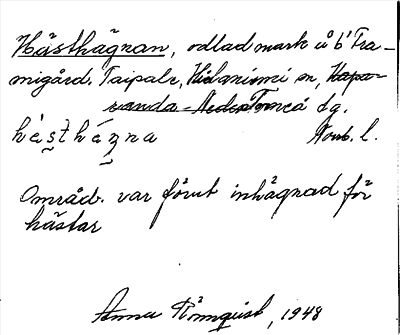 Hästhägnan, odlad mark å b' Tra-
migård. Taipale, Hietaniemi sn, Kapa-
randa-Neder Torneå dg.
hèsthéʒna Norrb. l.
Områd. var förut inhägnad för
hästar
Anna Rönnquist, 1948